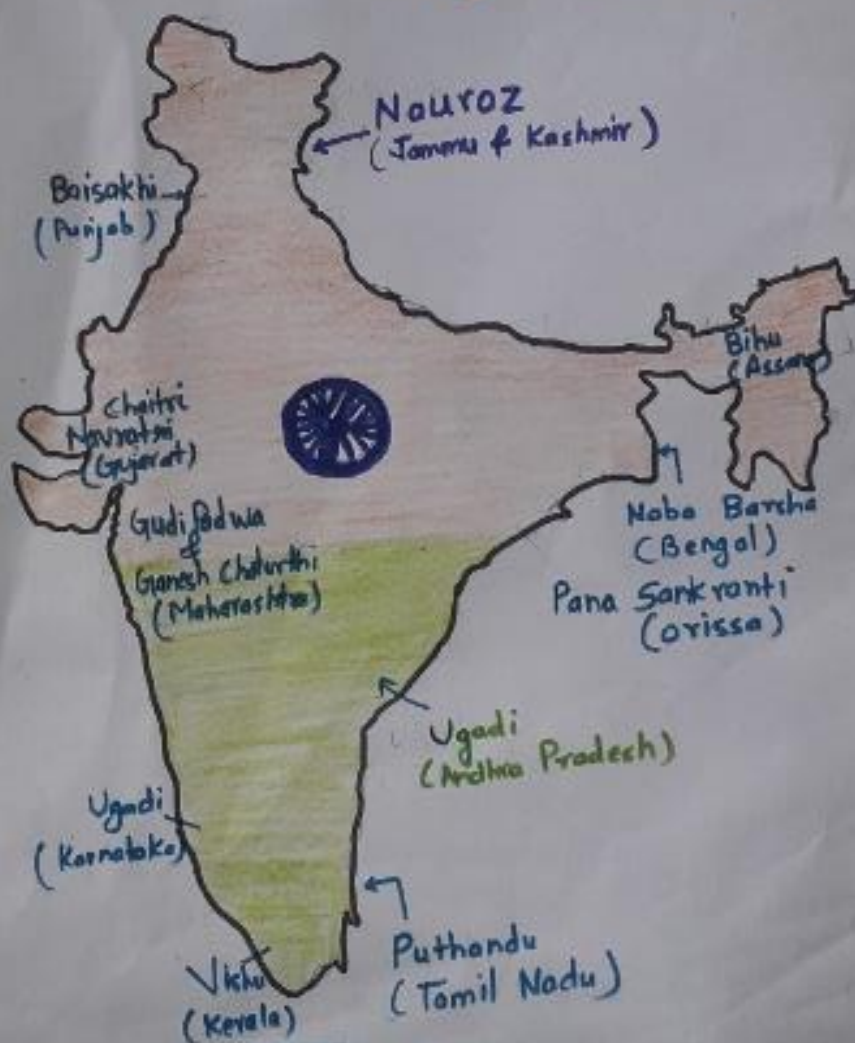 Nouroz
(Jammu & Kashmir)
Baisakhi
(Punjab)
Bihu
(Assam)
Chaitri
Navratri
(Gujarat)
Gudi Padwa
&
Ganesh Chaturthi
(Maharashtra)
Nabo Barsha
(Bengal)
Pana Sankranti
(Orissa)
Ugadi
(Andhra Pradesh)
Ugadi
(Karnataka)
Puthandu
(Tamil Nadu)
Vishu
(Kerala)